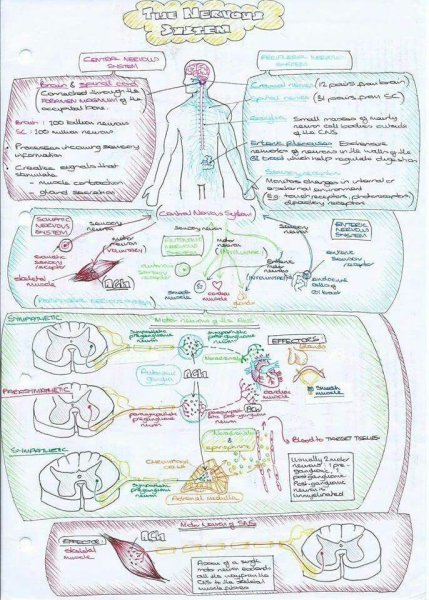 THE NERVOUS
SYSTEM
CENTRAL NERVOUS
SYSTEM
Brain & spinal cord
Connected through the
FORAMEN MAGNUM of the
occipital bone.
Brain: 100 billion neurons
SC: 100 million neurons
Processes incoming sensory
information
Creates signals that
stimulate
- muscle contraction
- gland secretion
PERIPHERAL NERVOUS
SYSTEM
Cranial nerves (12 pairs from brain)
Spinal nerves (31 pairs from SC)
Ganglia Small masses of mainly
neuron cell bodies outside
of the CNS
Enteric Plexuses Extensive
networks of neurons in the walls of the
GI tract which help regulate digestion
Sensory receptors
Monitors changes in internal or
external environment
E.g. touch receptors, photoreceptors,
olfactory receptors
Central Nervous System
SOMATIC
NERVOUS
SYSTEM
Sensory
neuron
Motor
neuron
(VOLUNTARY)
Somatic sensory
receptor
Skeletal
muscle
ACh
Sensory neuron
AUTONOMIC
NERVOUS
SYSTEM
Motor
neuron
(INVOLUNTARY)
sensory
receptor
Smooth
muscle
Cardiac
muscle
Sensory
neuron
ENTERIC
NERVOUS
SYSTEM
Enteric
motor
neuron
(INVOLUNTARY)
Enteric
sensory
receptor
GI tract
PERIPHERAL NERVOUS SYSTEM
Motor neurons of the ANS
SYMPATHETIC
Sympathetic
preganglionic
neuron
Sympathetic
postganglionic
neuron
Noradrenaline
EFFECTORS
Glands
Cardiac
muscle
Smooth
muscle
Autonomic
ganglia
ACh
PARASYMPATHETIC
parasympathetic
preganglionic
neuron
ACh
Noradrenaline
&
epinephrine
Blood to TARGET TISSUES
SYMPATHETIC
Chromaffin
cells
Sympathetic
preganglionic
neuron
Adrenal medulla
Usually 2 motor
neurons; 1 pre-
ganglionic, 1
postganglionic
Post-ganglionic
neuron is
unmyelinated
Motor Neuron of SNS
EFFECTOR:
skeletal
muscle
ACh
Axon of a single
motor neuron extends
all the way from the
CNS to the skeletal
muscle fibres